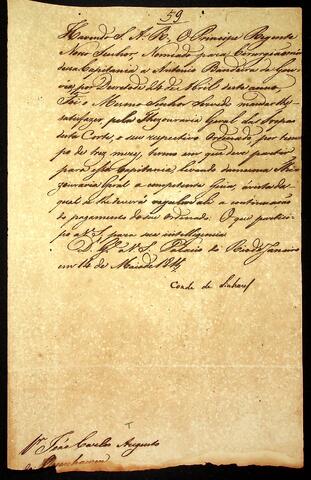 59
Havendo S. A. R. O Principe Regente
Nosso Senhor, Nomeado para Cirurgião mór
dessa Capitania a Antonio Bandeira de Gou-
vea, por Decreto de 24 de Abril deste anno
Foi o Mesmo Senhor Servido mandar lhe
satisfazer pela Thezouraria Geral das Tropas
desta Corte, o seu respectivo Ordenado, por tem-
po de trez mezes, termo em que deve partir
para essa Capitania, levando da mesma The-
zouraria Geral a competente Guia, á vista da
qual se lhe deverá regular ahi a continuação
do pagamento do seu Ordenado. O que partici-
po a V. S. para sua intelligencia
D. G.e a V. S. Palacio do Rio de Janeiro
em 14 de Maio de
Conde de
Snr João Carlos Augusto
de Oyenhausen